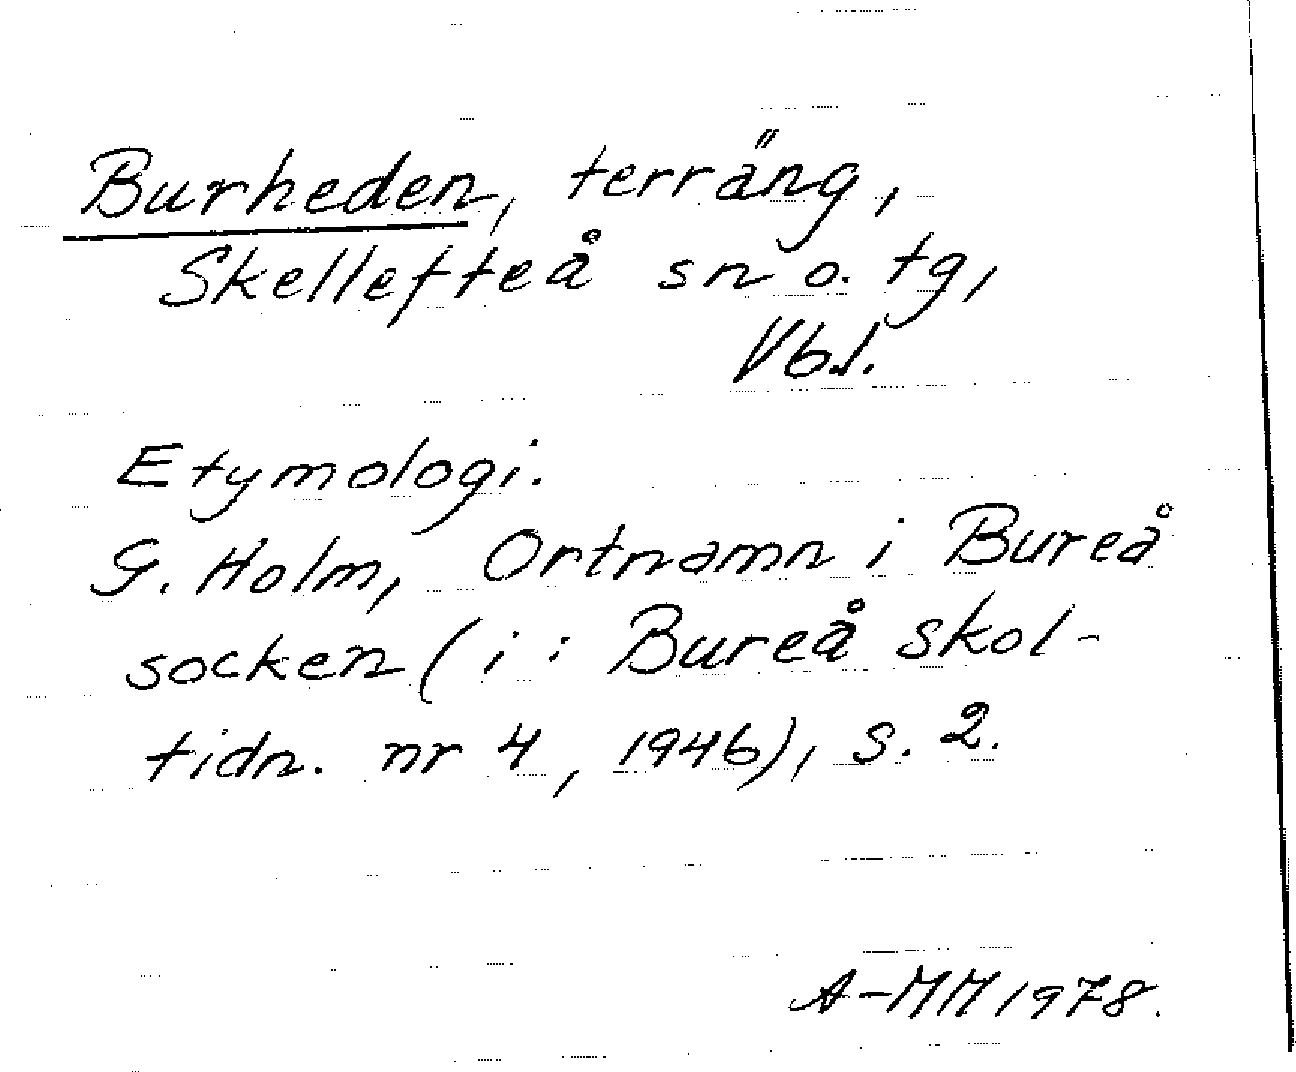 Burheden, terräng,
Skellefteå sn o. tg,
Vb.l.
Etymologi.
G. Holm, Ortnamn i Bureå
socken (i: Bureå skol-
tidn. nr 4, 1946), s. 2.
A-MM 1978.